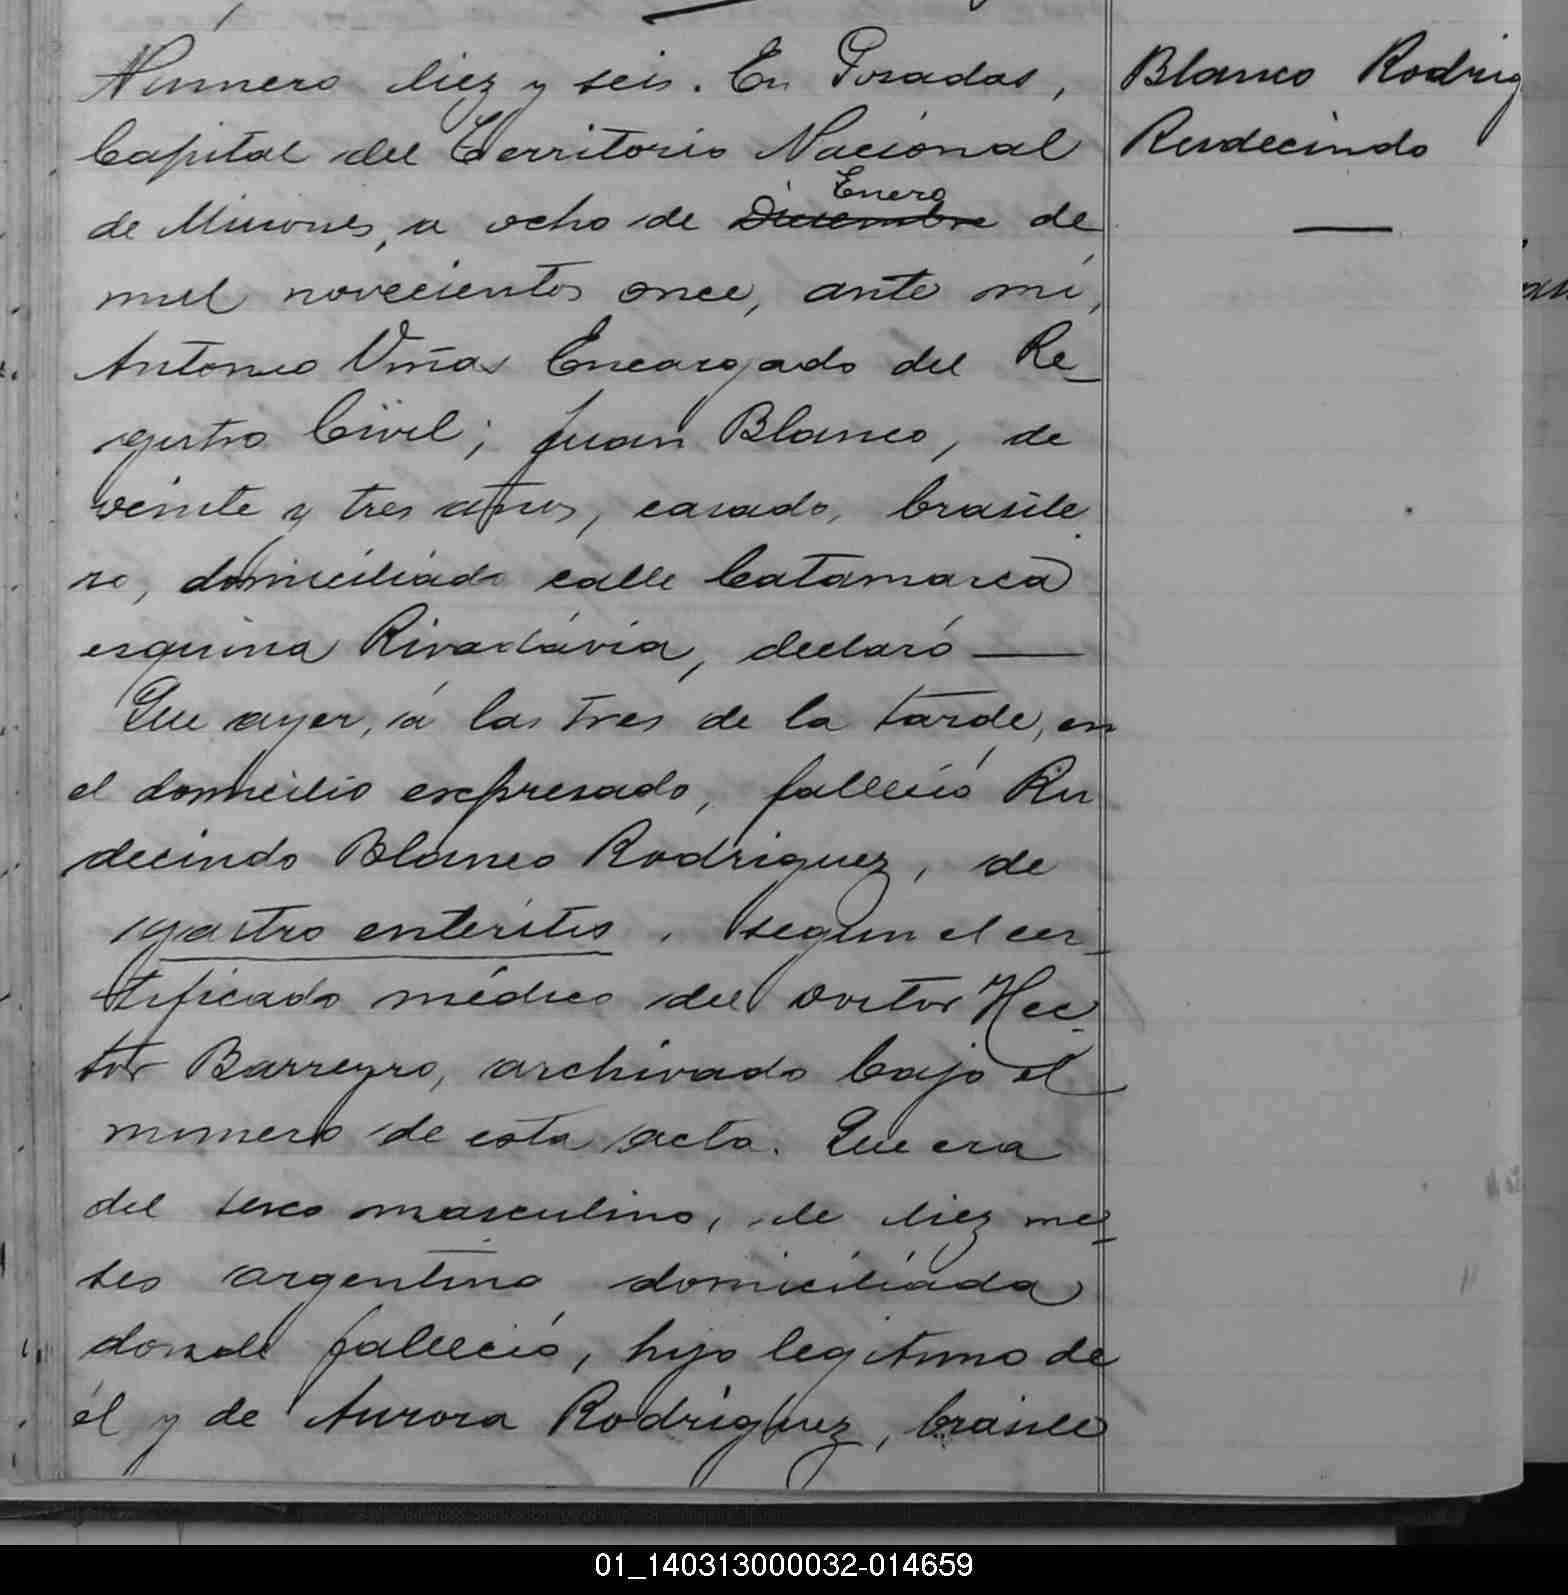 Número diez y seis. En Posadas,
Capital del Territorio Nacional
de Misiones, a ocho de Diciembre Enero de
mil novecientos once, ante mí,
Antonio Viñas Encargado del Re_
gistro Civil; Juan Blanco, de
veinte y tres años, casado, brasile
ro, domiciliado calle Catamarca
esquina Rivadavia, declaró —
Que ayer, á las tres de la tarde, en
el domicilio expresado, falleció Ru
decindo Blanco Rodriguez, de
gastro enteritis, segun el cer_
tificado médico del doctor Hec_
tor Barreyro, archivado bajo el
número de esta acta. Que era
del sexo masculino, de diez me_
ses argentino domiciliada
donde falleció, hijo legitimo de
él y de Aurora Rodríguez, brasile
Blanco Rodrig
Rudecindo
—
01_140313000032-014659